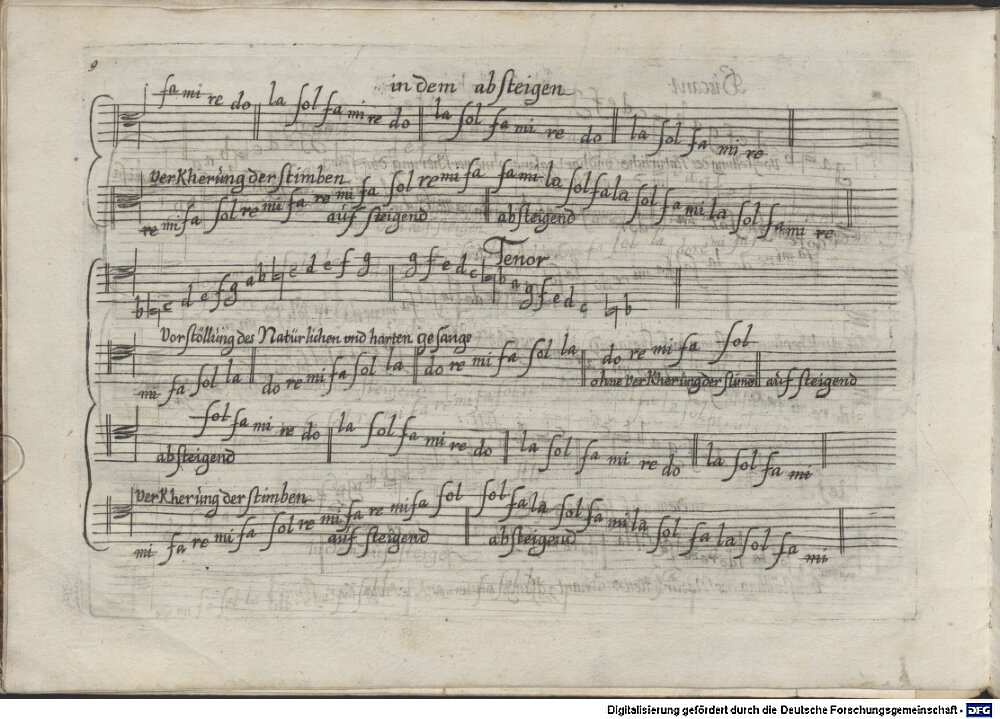 9
in dem absteigen
fa mi re do la sol fa mi re do la sol fa mi re do la sol fa mi re
Verkherung der stimben
re mi fa sol re mi fa re mi fa sol re mi fa fa mi la sol fa la sol fa mi la sol fa mi re
auf steigend absteigend
Tenor
b ♮ c d e f g a b ♮ c d e f g g f e d c ♮ b a g f e d c ♮ b
Vorstöllung des Natürlichen vnd harten gesangs
mi fa sol la do re mi fa sol la do re mi fa sol la do re mi fa sol
ohne Verkherung der stimen auf steigend
sol fa mi re do la sol fa mi re do la sol fa mi re do la sol fa mi
absteigend
Verkherung der stimben
mi fa re mi fa sol re mi fa re mi fa sol sol fa la sol fa mi la sol fa la sol fa mi
auf steigend absteigend
Digitalisierung gefördert durch die Deutsche Forschungsgemeinschaft - DFG